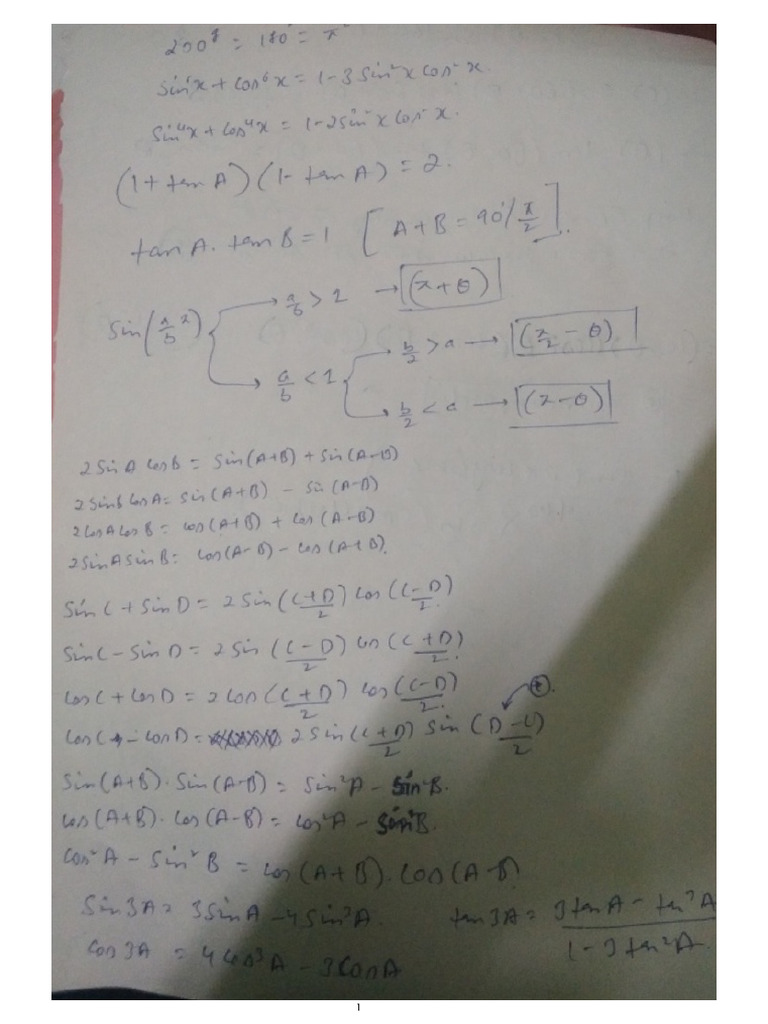 200g = 180° = π
sin⁶x + cos⁶x = 1 - 3 sin²x cos²x.
sin⁴x + cos⁴x = 1 - 2sin²x cos²x.
(1 + tan A) (1 - tan A) = 2.
tan A. tan B = 1 [A + B = 90°/π/2].
a/b > 1 → (π + θ)
sin(a/b π)
b/2 > a → (π/2 - θ)
a/b < 1
b/2 < a → (π - θ)
2 sin A cos B = sin(A+B) + sin(A-B)
2 sin B cos A = sin(A+B) - sin(A-B)
2 cos A cos B = cos(A+B) + cos(A-B)
2 sin A sin B = cos(A-B) - cos(A+B).
sin C + sin D = 2 sin (C+D/2) cos (C-D/2)
sin C - sin D = 2 sin (C-D/2) cos (C+D/2).
cos C + cos D = 2 cos (C+D/2) cos (C-D/2).
cos C - cos D = 2 sin (C+D/2) sin (D-C/2)
sin(A+B). sin(A-B) = sin²A - sin²B.
cos(A+B). cos(A-B) = cos²A - sin²B.
cos²A - sin²B = cos(A+B). cos(A-B)
sin 3A = 3 sin A - 4 sin³A. tan 3A = 3 tan A - tan³A / 1 - 3 tan²A.
cos 3A = 4 cos³A - 3 cos A
1